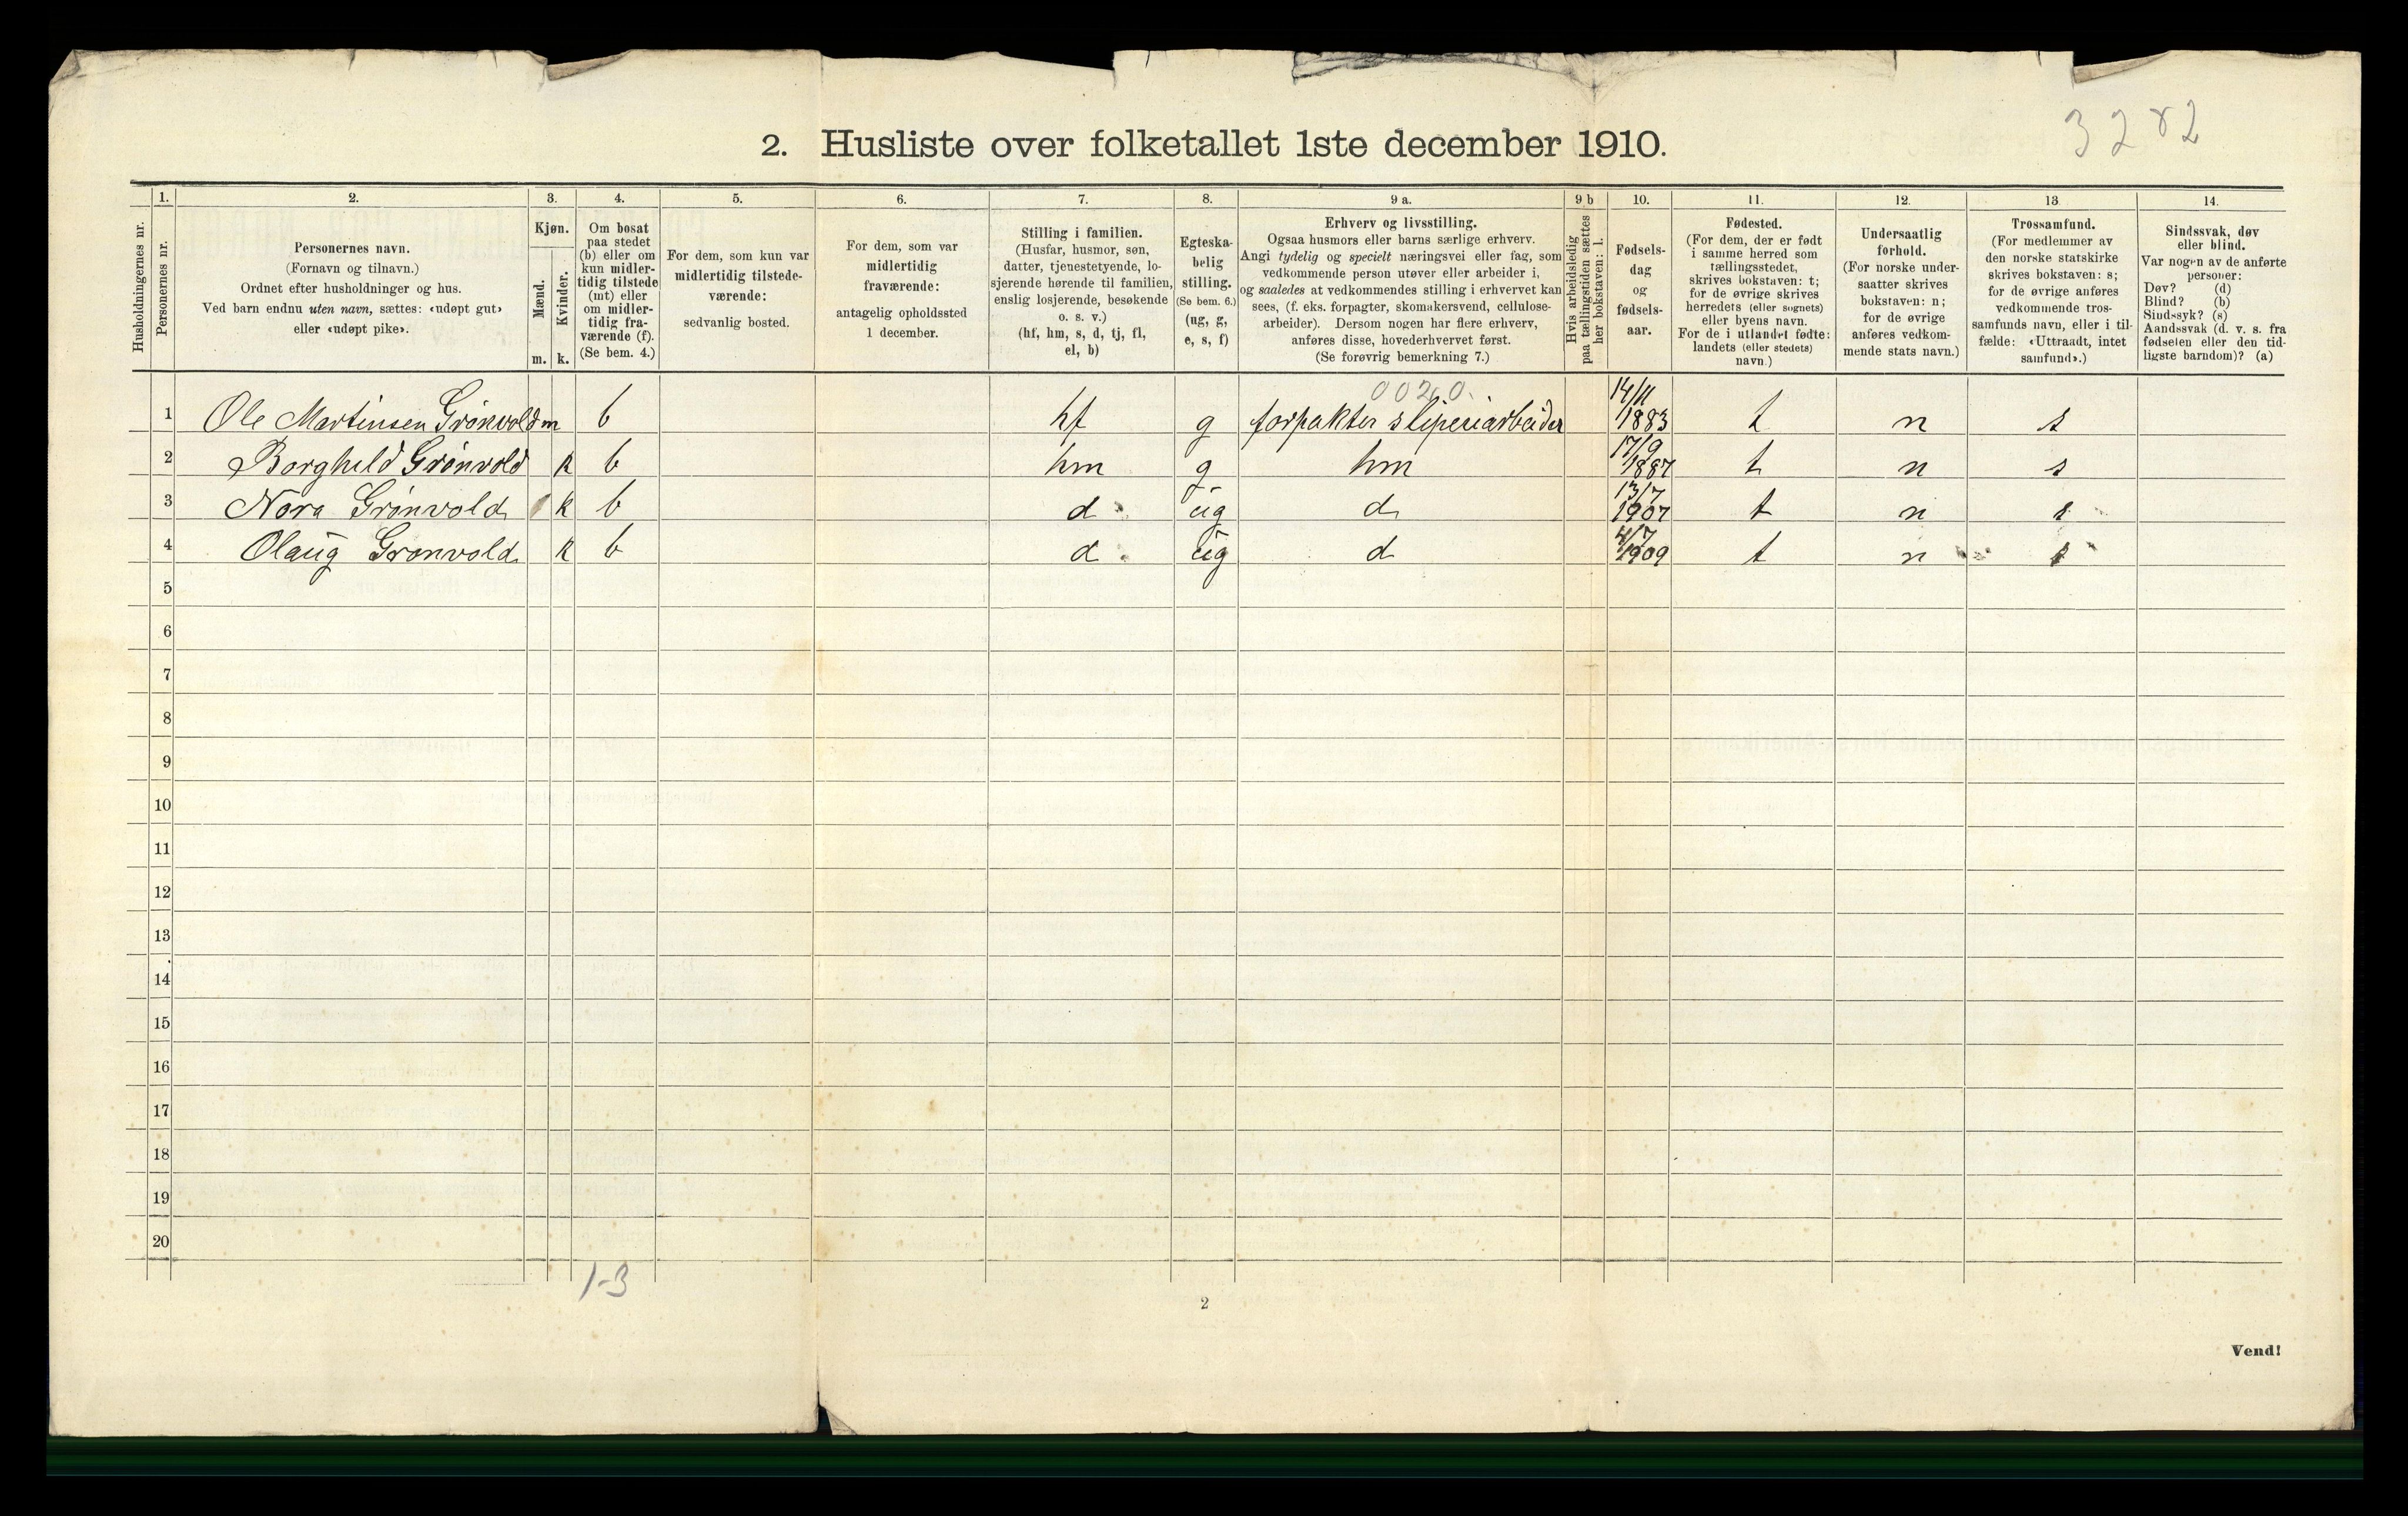 32 82
2. Husliste over folketallet 1ste december 1910.
Husholdningernes nr.
1.
Personernes nr.
2.
Personernes navn.
(Fornavn og tilnavn.)
Ordnet efter husholdninger og hus.
Ved barn endnu uten navn, sættes: «udøpt gut»
eller «udøpt pike».
3.
Kjøn.
Mænd.
Kvinder.
m. k.
4.
Om bosat
paa stedet
(b) eller om
kun midler-
tidig tilstede
(mt) eller
om midler-
tidig fra-
værende (f).
(Se bem. 4.)
5.
For dem, som kun var
midlertidig tilstede-
værende:
sedvanlig bosted.
6.
For dem, som var
midlertidig
fraværende:
antagelig opholdssted
1 december.
7.
Stilling i familien.
(Husfar, husmor, søn,
datter, tjenestetyende, lo-
sjerende hørende til familien,
enslig losjerende, besøkende
o. s. v.)
(hf, hm, s, d, tj, fl,
el, b)
8.
Egteska-
belig
stilling.
(Se bem. 6.)
(ug, g,
e, s, f)
9 a.
Erhverv og livsstilling.
Ogsaa husmors eller barns særlige erhverv.
Angi tydelig og specielt næringsvei eller fag, som
vedkommende person utøver eller arbeider i,
og saaledes at vedkommendes stilling i erhvervet kan
sees, (f. eks. forpagter, skomakersvend, cellulose-
arbeider). Dersom nogen har flere erhverv,
anføres disse, hovederhvervet først.
(Se forøvrig bemerkning 7.)
9 b
Hvis arbeidsledig
paa tællingstiden sættes
her bokstaven: l.
10.
Fødsels-
dag
og
fødsels-
aar.
11.
Fødested.
(For dem, der er født
i samme herred som
tællingsstedet,
skrives bokstaven: t;
for de øvrige skrives
herredets (eller sognets)
eller byens navn.
For de i utlandet fødte:
landets (eller stedets)
navn.)
12.
Undersaatlig
forhold.
(For norske under-
saatter skrives
bokstaven: n;
for de øvrige
anføres vedkom-
mende stats navn.)
13.
Trossamfund.
(For medlemmer av
den norske statskirke
skrives bokstaven: s;
for de øvrige anføres
vedkommende tros-
samfunds navn, eller i til-
fælde: «Uttraadt, intet
samfund».)
14.
Sindssvak, døv
eller blind.
Var nogen av de anførte
personer:
Døv? (d)
Blind? (b)
Sindssyk? (s)
Aandssvak (d. v. s. fra
fødselen eller den tid-
ligste barndom)? (a)
0020.
1 Ole Martinsen Grönvold m b hf g forpakter sliperiarbeider 14/11 1883 t n s
2 Borghild Grönvold k b hm g hm 17/9 1887 t n s
3 Nora Grönvold k b d ug d 13/7 1907 t n s
4 Olaug Grönvold k b d ug d 4/7 1909 t n s
5
6
7
8
9
10
11
12
13
14
15
16
17
18
19
20
1-3
2
Vend!